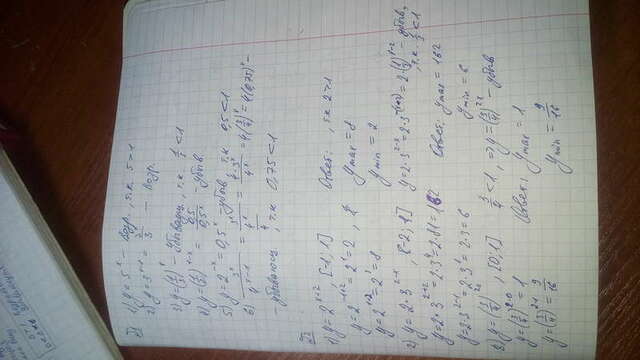 №1
1) y = 5^x - Возр., т.к. 5>1
2) y = 3^(x-1) = 3^x/3 - Возр.
3) y = (1/5)^x - Убывающ., т.к. 1/5 <1
5) y = 2^(-x) = 0,5^x - убыв т.к 0,5<1
6) 3^x/4^(x-1) = 3^x/(4^x/4) = 4·3^x/4^x = 4(3/4)^x = 4(0,75)^x -
- убывающ, т.к 0,75<1
№2
1) y = 2^(x+2), [-1; 1] Ответ: , т.к 2>1
y = 2^(-1+2) = 2^1 = 2 y max = 8
y = 2^(1+2) = 2^3 = 8 y min = 2
2) y = 2·3^(2-x), [-2; 1] y = 2·3^(2-x) = 2·3^(-(x-2)) = 2·(1/3)^(x-2) - убыв.,
т.к. 1/3 <1
y = 2·3^(2+2) = 2·3^4 = 2·81 = 162 Ответ: y max = 162
y = 2·3^(2-1) = 2·3^1 = 2·3 = 6 y min = 6
3) y = (3/4)^(2x), [0; 1] 3/4 <1, => y = (3/4)^(2x) - убыв
y = (3/4)^(2·0) = 1 Ответ: y max = 1
y = (3/4)^(2·1) = 9/16 y min = 9/16